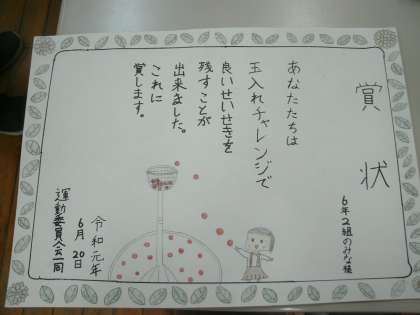 賞状
6年2組のみな様
あなたたちは
玉入れチャレンジで
良いせいせきを
残すことが
出来ました。
これに
賞します。
令和元年
6月20日
運動委員会一同